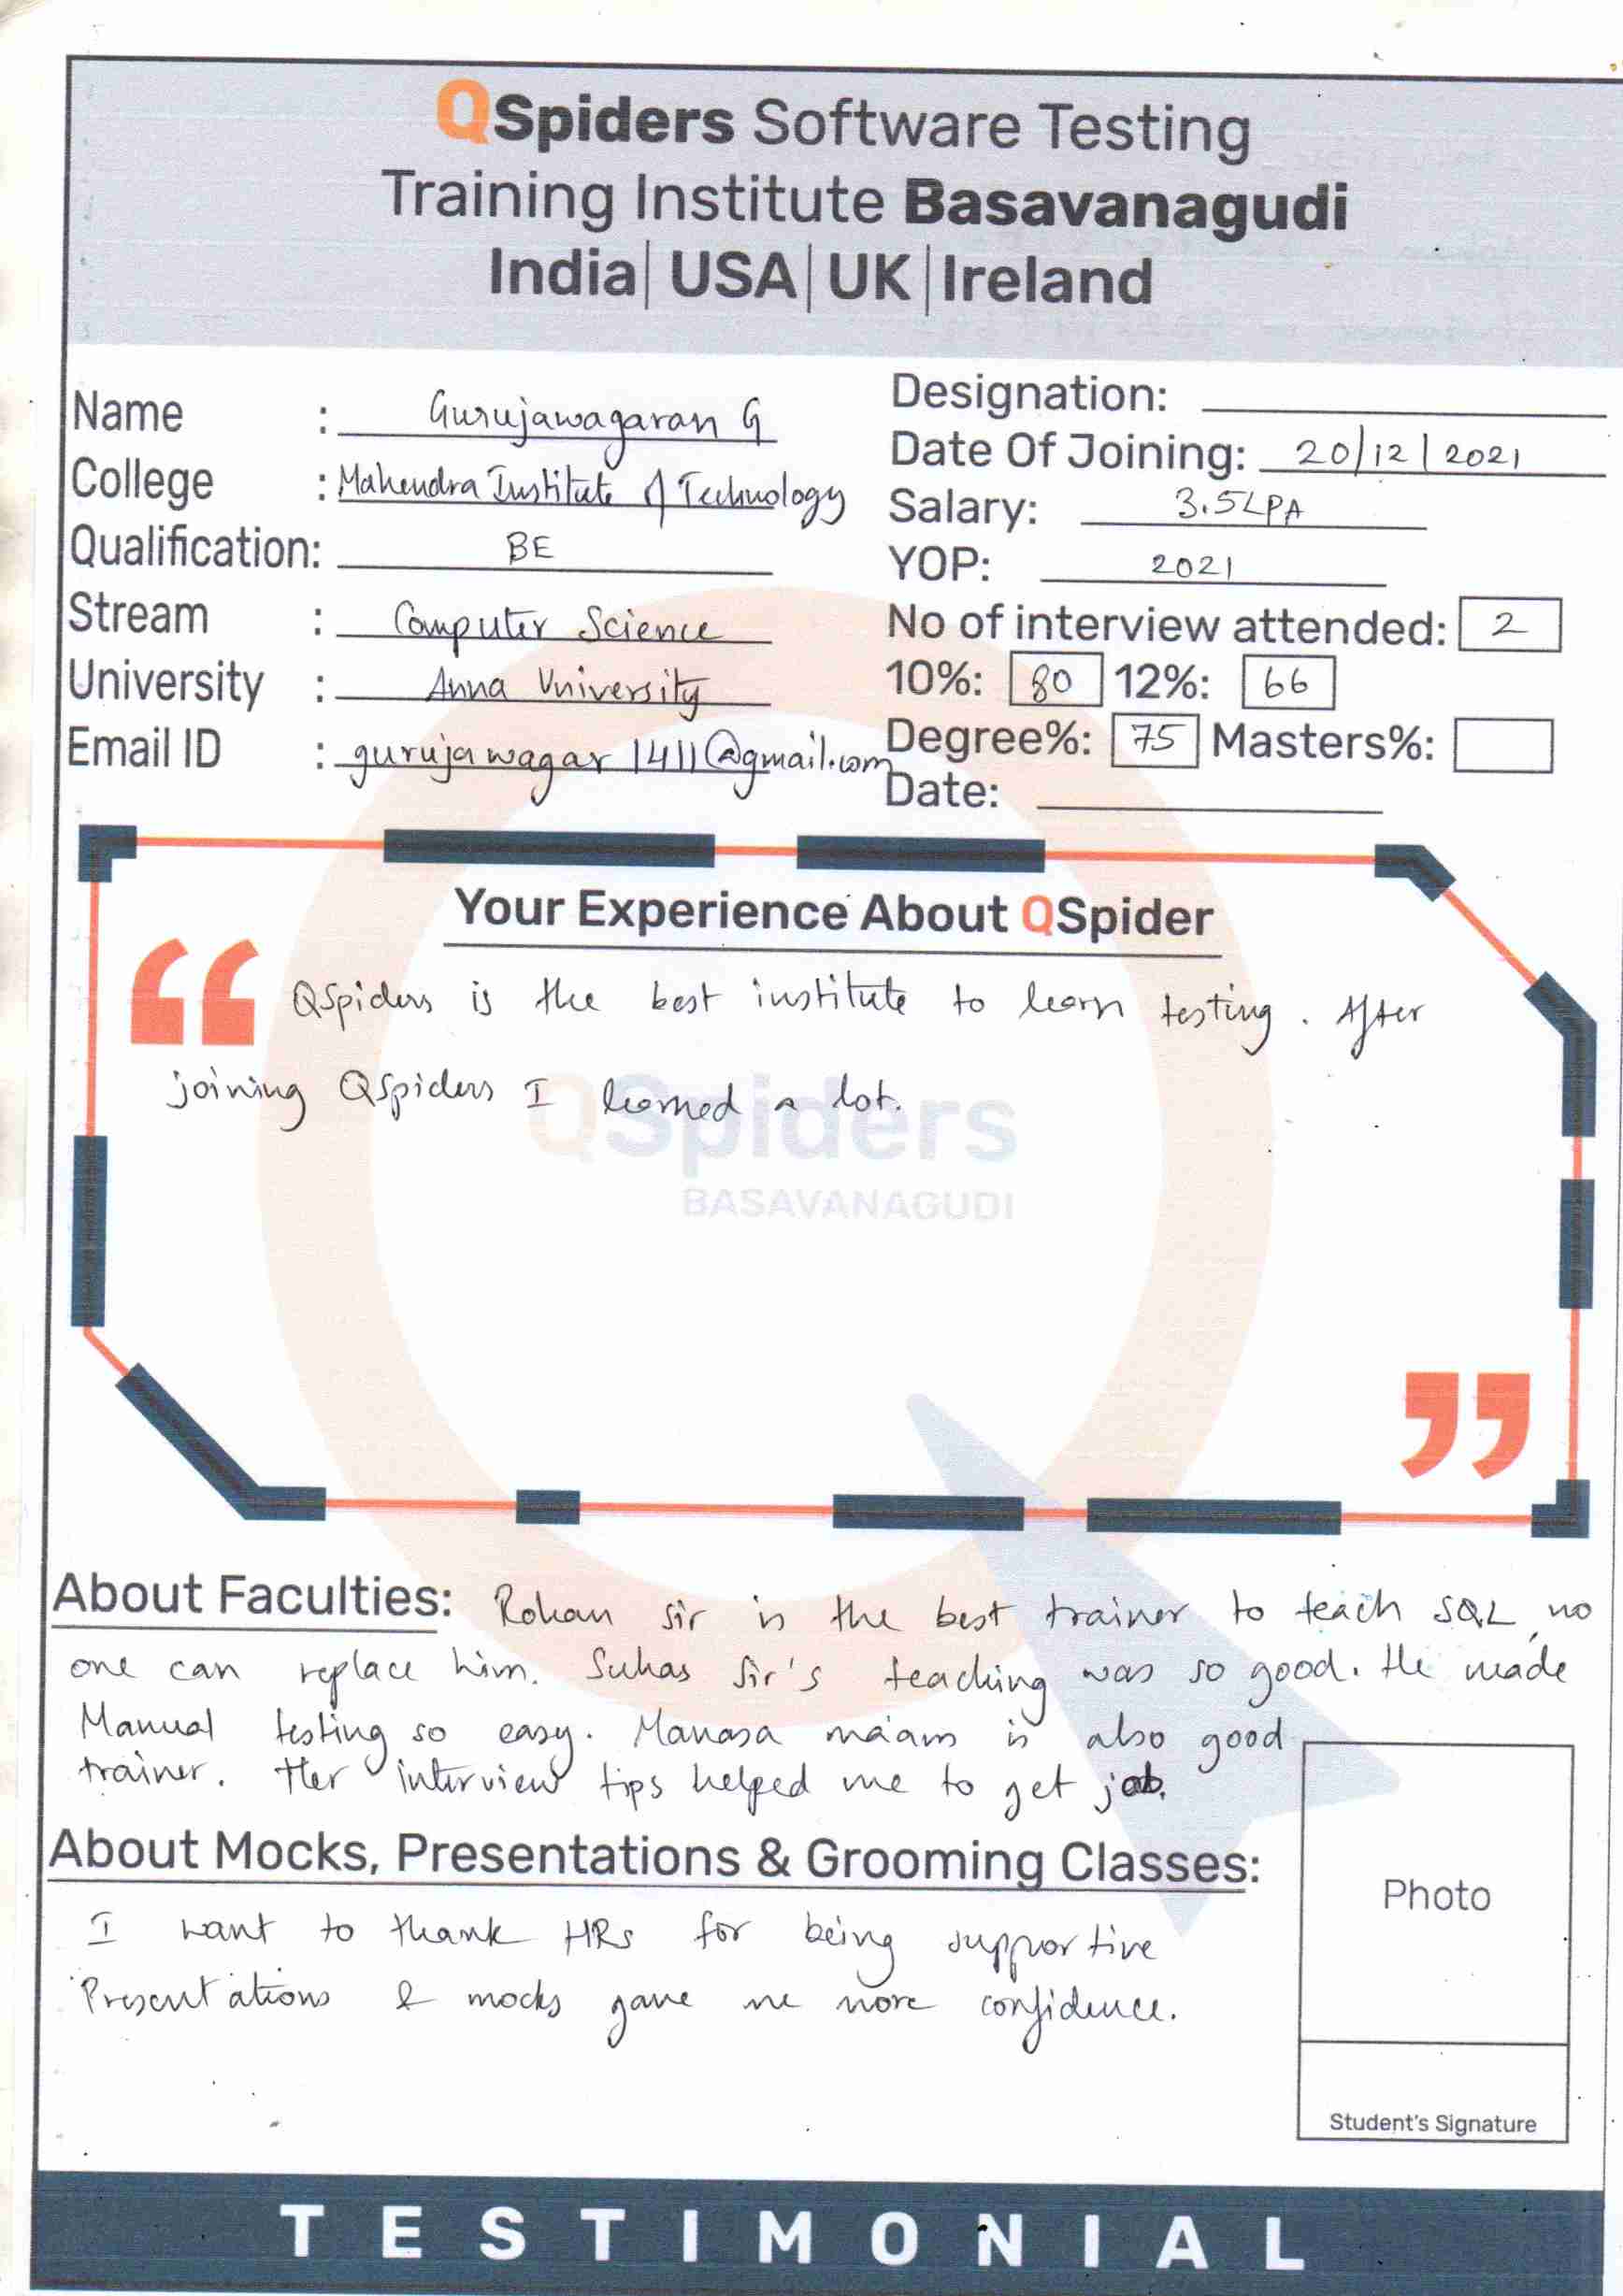 QSpiders Software Testing
Training Institute Basavanagudi
India| USA| UK| Ireland
Name : Gurujawagaran G
Designation:
Date Of Joining: 20/12/2021
College : Mahendra Institute of Technology
Salary: 3.5LPA
Qualification: BE
YOP: 2021
Stream : Computer Science
No of interview attended: 2
University : Anna University
10%: 80 12%: 66
Email ID : gurujawagar1411@gmail.com
Degree%: 75 Masters%:
Date:
Your Experience About QSpider
“
QSpiders is the best institute to learn testing. After
joining QSpiders I learned a lot.
QSpiders
BASAVANAGUDI
”
About Faculties: Rohan sir is the best trainer to teach SQL, no
one can replace him. Suhas Sir's teaching was so good. He made
Manual testing so easy. Manasa ma'am is also good
trainer. Her interview tips helped me to get job.
About Mocks, Presentations & Grooming Classes:
I want to thank HRs for being supportive
Presentations & mocks gave me more confidence.
Photo
Student's Signature
TESTIMONIAL